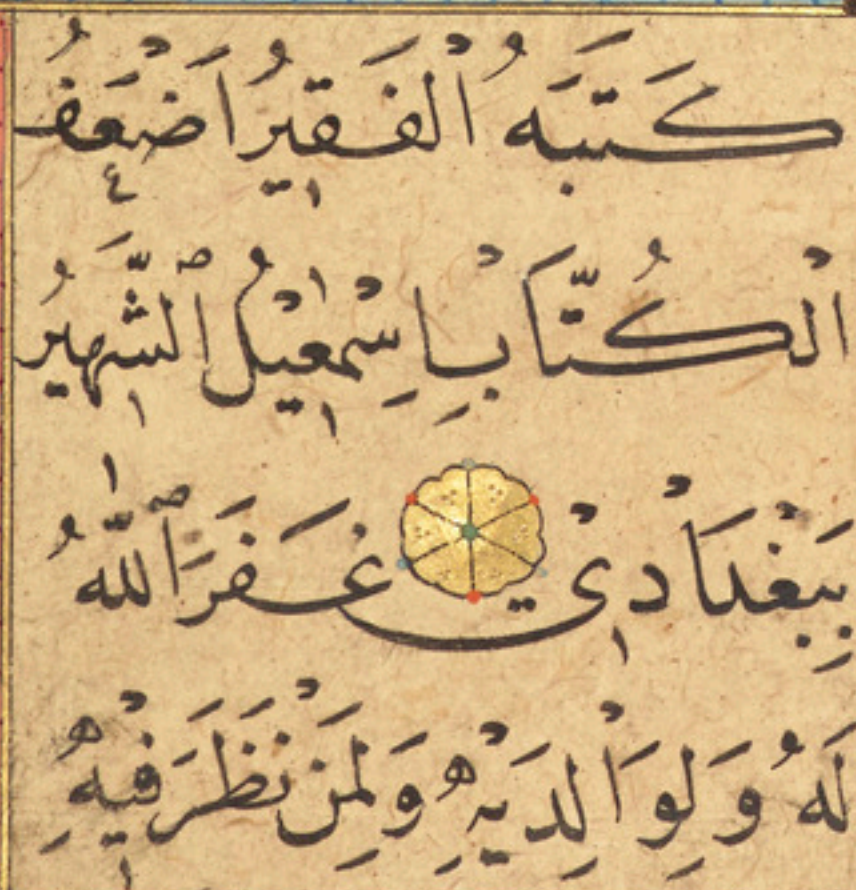 كَتَبَهُ الْفَقِيرُ اَضْعَفُ
الْكُتَّابِ اِسْمٰعِيْلُ ٱلشَّهِيرُ
بِبَغْدَادِيْ غَفَرَ ٱللّٰهُ
لَهُ وَلِوَالِدَيْهِ وَلِمَنْ نَظَرَ فِيْهِ